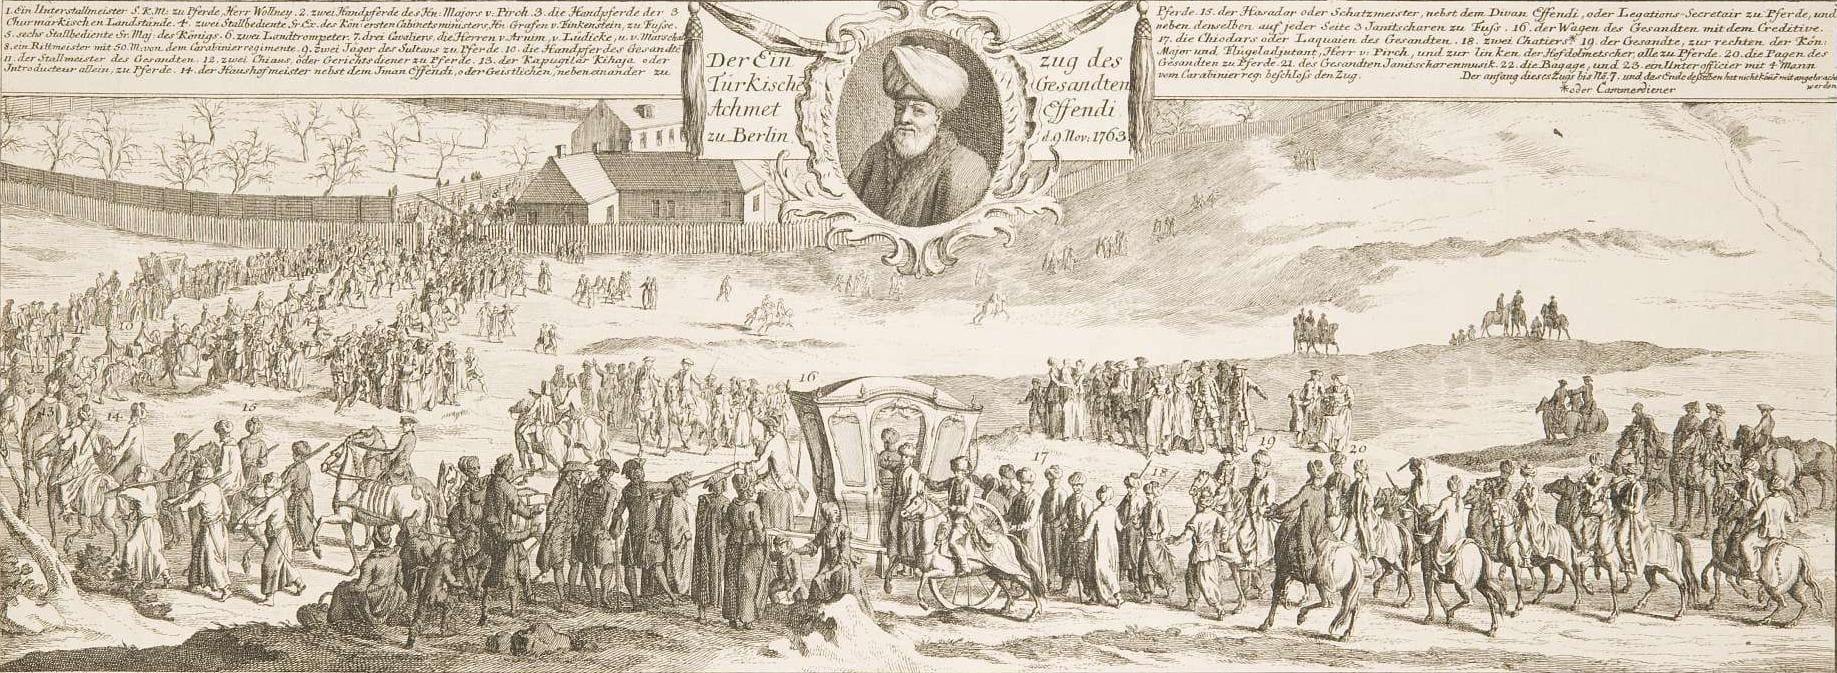 1. Ein Unterstallmeister S. K. M. zu Pferde, Herr Wollney. 2. zwei Handpferde des Hn. Majors v. Pirch. 3. die Handpferde der 3
Churmärkischen Landstände. 4. zwei Stallbediente, Sr. Ex. des Kön: ersten Cabinetsministers, Hn. Grafen v. Finkenstein, zu Fusse.
5. sechs Stallbediente Sr. Maj. des Königs. 6. zwei Landtrompeter. 7. drei Cavaliers, die Herren v. Arnim, v. Lüdicke, u. v. Marschal
8. ein Rittmeister mit 50. M. von dem Carabinierregimente. 9. zwei Jäger des Sultans zu Pferde. 10. die Handpferde des Gesandte
11. der Stallmeister des Gesandten. 12. zwei Chiaus, oder Gerichtsdiener zu Pferde. 13. der Kapugilar Kihaja oder
Introducteur allein, zu Pferde. 14. der Haushofmeister nebst dem Iman Effendi, oder Geistlichen, neben einander zu
Der Ein zug des
Türkische Gesandten
Achmet Effendi
zu Berlin d. 9 Nov: 1763.
Pferde. 15. der Hasadar oder Schatzmeister, nebst dem Divan Effendi, oder Legations-Secretair zu Pferde, und
neben denselben auf jeder Seite 3 Janitscharen zu Fuss. 16. der Wagen des Gesandten mit dem Creditive.
17. die Chiodars oder Laquaien des Gesandten. 18. zwei Chatiers* 19. der Gesandte, zur rechten der Kön:
Major und Flügeladjutant, Herr v. Pirch, und zur linken der Hofdolmetscher, alle zu Pferde. 20. die Pagen des
Gesandten zu Pferde. 21. des Gesandten Janitscharenmusik. 22. die Bagage, und 23. ein Unterofficier mit 4 Mann
vom Carabinierreg: beschloss den Zug. Der anfang dieses Zugs bis No. 7. und das Ende desselben hat nicht können mit angebracht
werden
*oder Cammerdiener
13
14
15
16
17
18
19
20